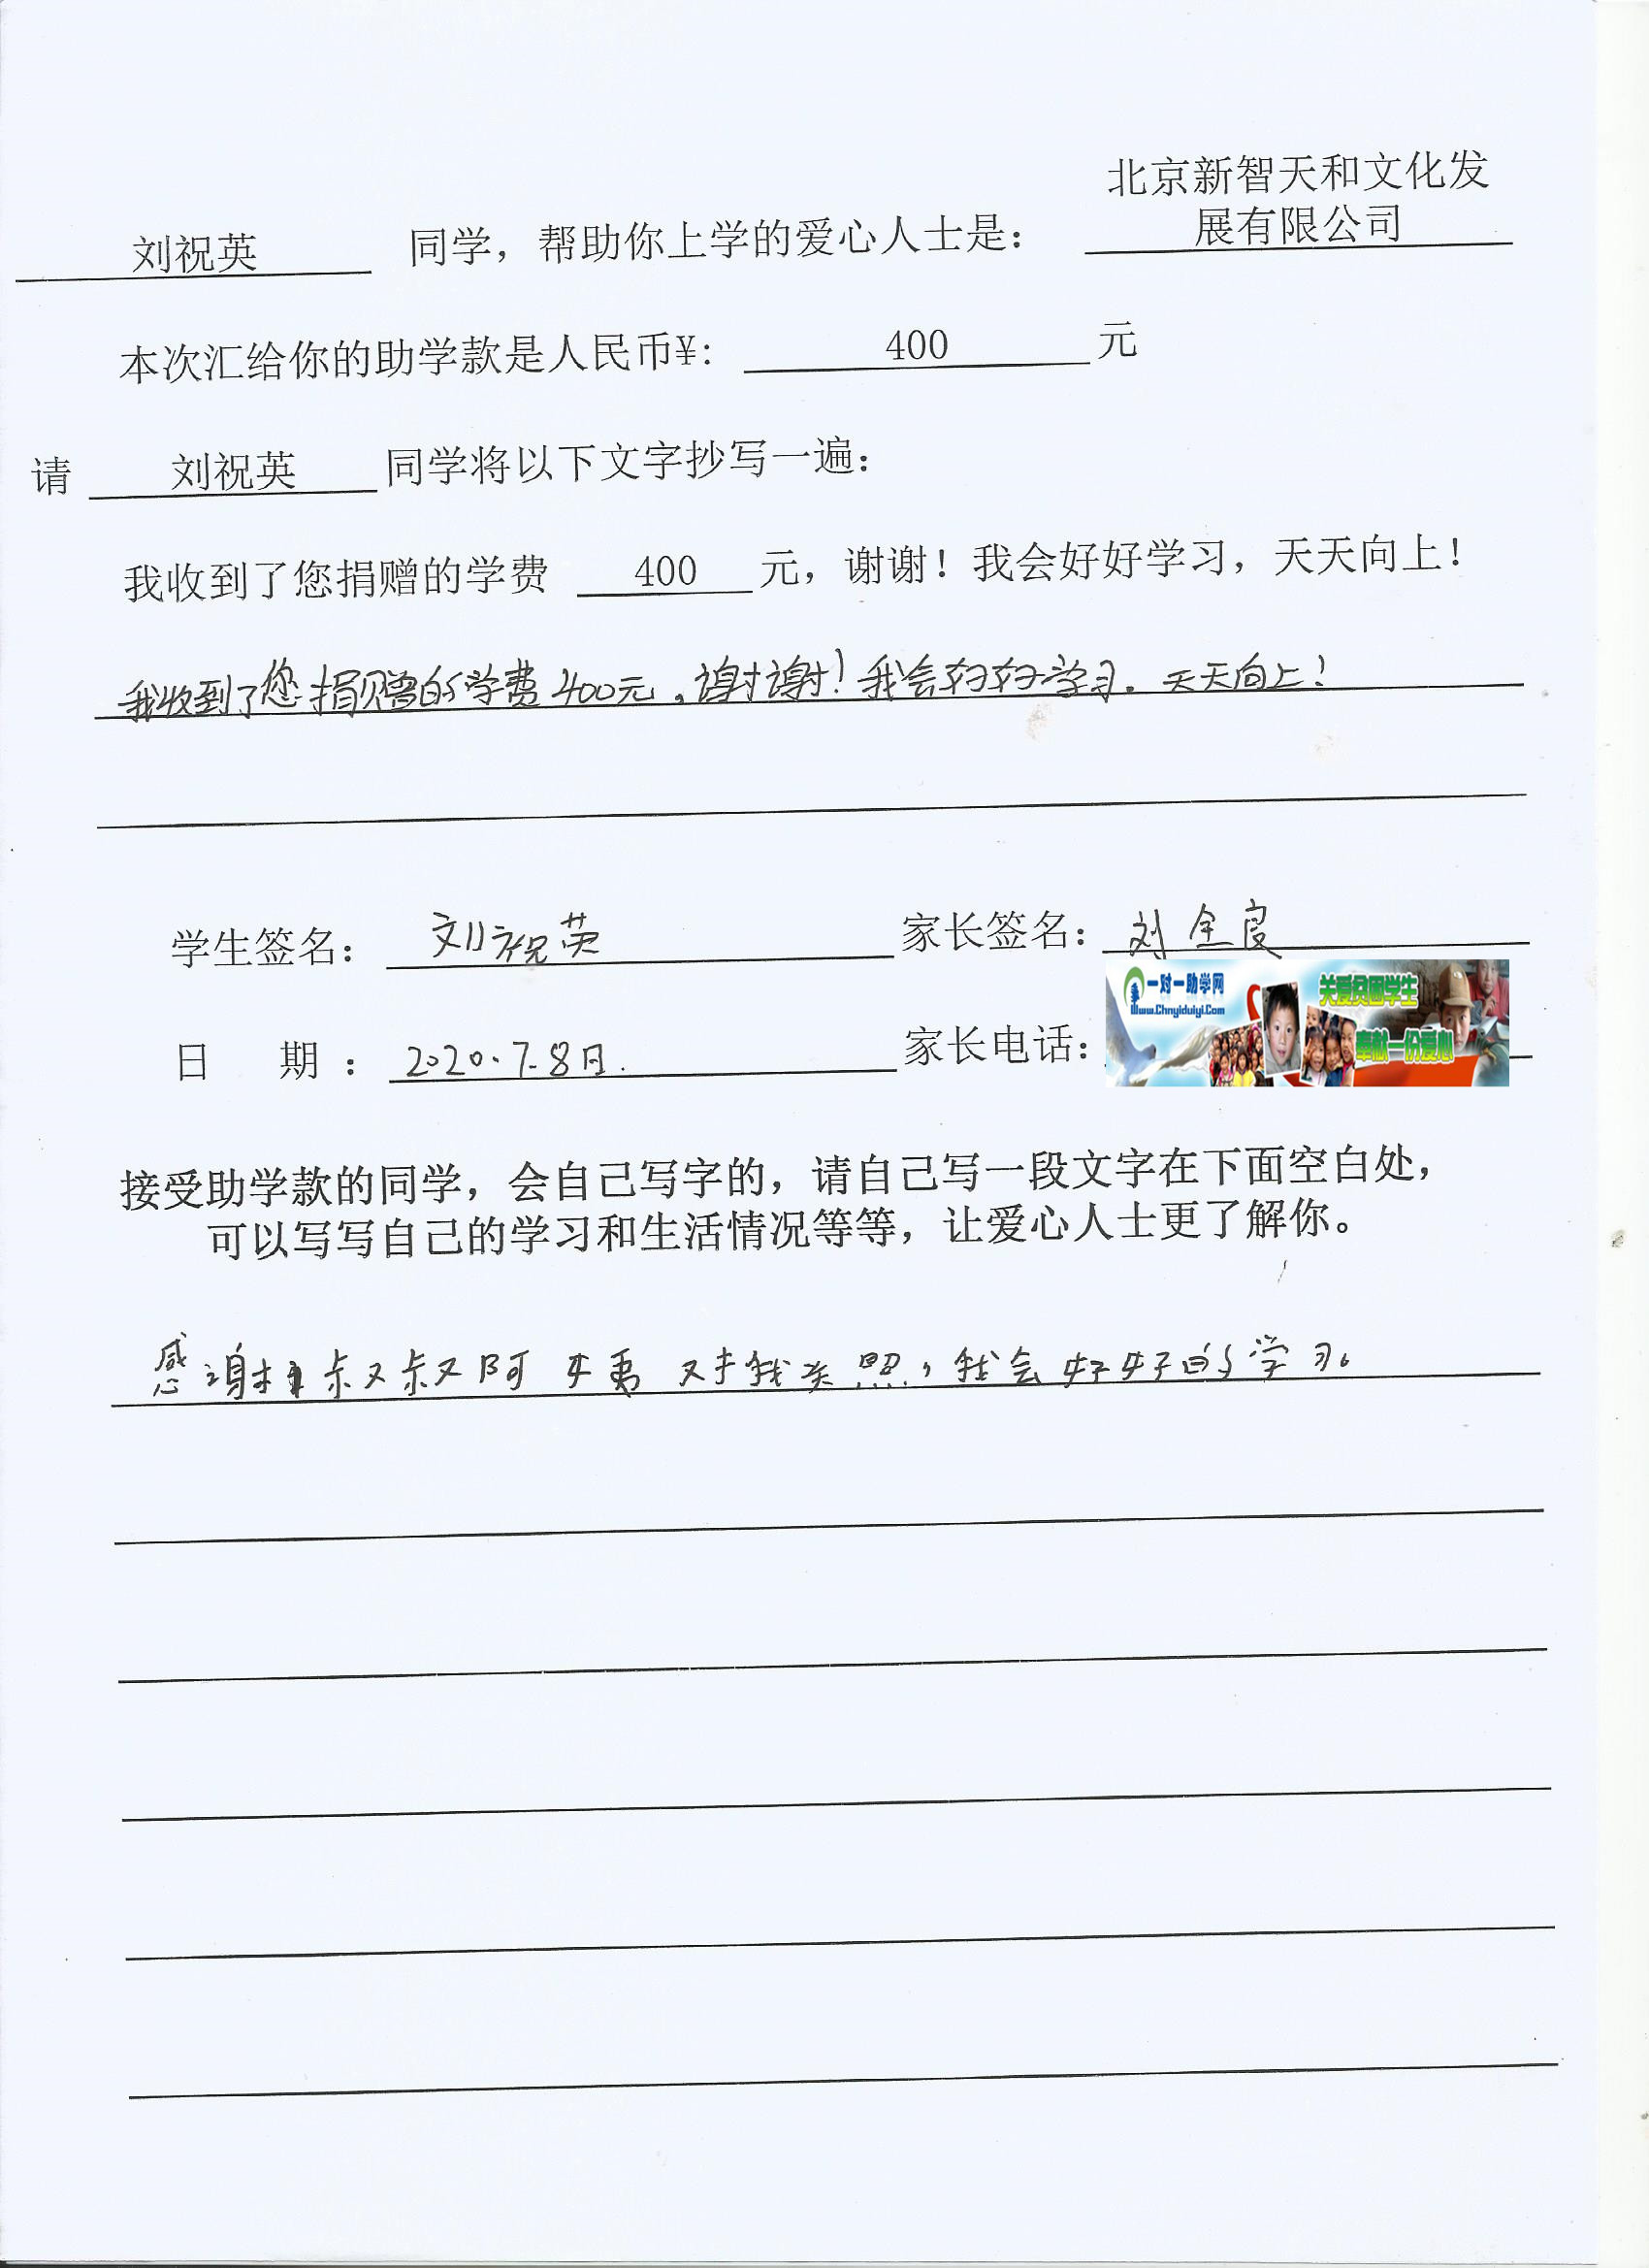 北京新智天和文化发
刘祝英 同学，帮助你上学的爱心人士是： 展有限公司
本次汇给你的助学款是人民币¥: 400 元
请 刘祝英 同学将以下文字抄写一遍：
我收到了您捐赠的学费 400 元，谢谢！我会好好学习，天天向上！
我收到了您捐赠的学费400元，谢谢！我会好好学习。天天向上！
学生签名： 刘祝英 家长签名： 刘全良
一对一助学网 关爱贫困学生
Www.Chnyiduiyi.Com
日 期 ： 2020.7.8日. 家长电话： 奉献一份爱心
接受助学款的同学，会自己写字的，请自己写一段文字在下面空白处，
可以写写自己的学习和生活情况等等，让爱心人士更了解你。
感谢叔叔阿姨对我关照，我会好好的学习。